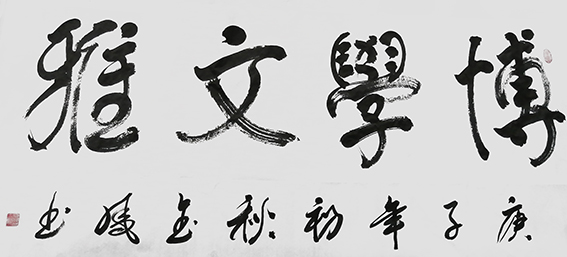 博學文雅
庚子年初秋 书